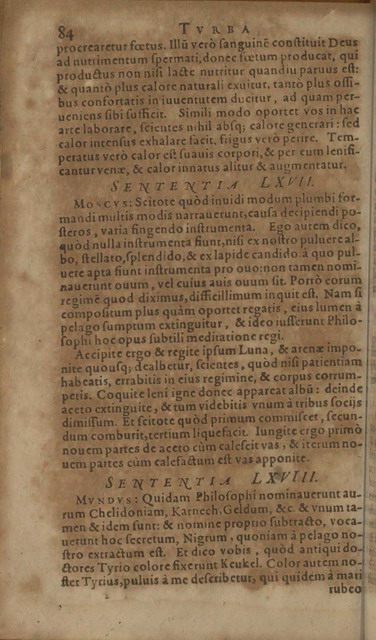 84 TVRBA
procrearetur fœtus. Illũ verò sanguinẽ constituit Deus
ad nutrimentum spermati, donec fœtum producat, qui
productus non nisi lacte nutritur quandiu paruus est:
& quantò plus calore naturali exuitur, tantò plus ossi-
bus confortatis in iuuentutem ducitur, ad quam per-
ueniens sibi sufficit. Simili modo oportet vos in hac
arte laborare, scientes nihil absq; calore generari: sed
calor intensus exhalare facit, frigus verò perire. Tem-
peratus verò calor est suauis corpori, & per eum lenifi-
cantur venæ, & calor innatus alitur & augmentatur.
SENTENTIA LXVII.
MONCVS: Scitote quòd inuidi modum plumbi for-
mandi multis modis narrauerunt, causa decipiendi po-
steros, varia fingendo instrumenta. Ego autem dico,
quòd nulla instrumenta fiunt, nisi ex nostro puluere al-
bo, stellato, splendido, & ex lapide candido à quo pul-
uere apta fiunt instrumenta pro ouo: non tamen nomi-
nauerunt ouum, vel cuius auis ouum sit. Porrò eorum
regimẽ quod diximus, difficillimum inquit est. Nam si
compositum plus quàm oportet regatis, eius lumen à
pelago sumptum extinguitur, & ideo iusserunt Philo-
sophi hoc opus subtili meditatione regi.
Accipite ergo & regite ipsum Luna, & arenæ impo-
nite quousq; dealbetur, scientes, quòd nisi patientiam
habeatis, errabitis in eius regimine, & corpus corrum-
petis. Coquite leni igne donec appareat albũ: deinde
aceto extinguite, & tum videbitis vnum à tribus socijs
dimissum. Et scitote quòd primum commiscet, secun-
dum comburit, tertium liquefacit. Iungite ergo primò
nouem partes de aceto cùm calescit vas, & iterum no-
uem partes cùm calefactum est vas apponite.
SENTENTIA LXVIII.
MVNDVS: Quidam Philosophi nominauerunt au-
rum Chelidoniam, Karnech, Geldum, &c. & vnum ta-
men & idem sunt: & nomine proprio subtracto, voca-
uerunt hoc secretum, Nigrum, quoniam à pelago no-
stro extractum est. Et dico vobis, quòd antiqui do-
ctores Tyrio colore fixerunt Keukel. Color autem no-
ster Tyrius, puluis à me describetur, qui quidem à mari
rubeo